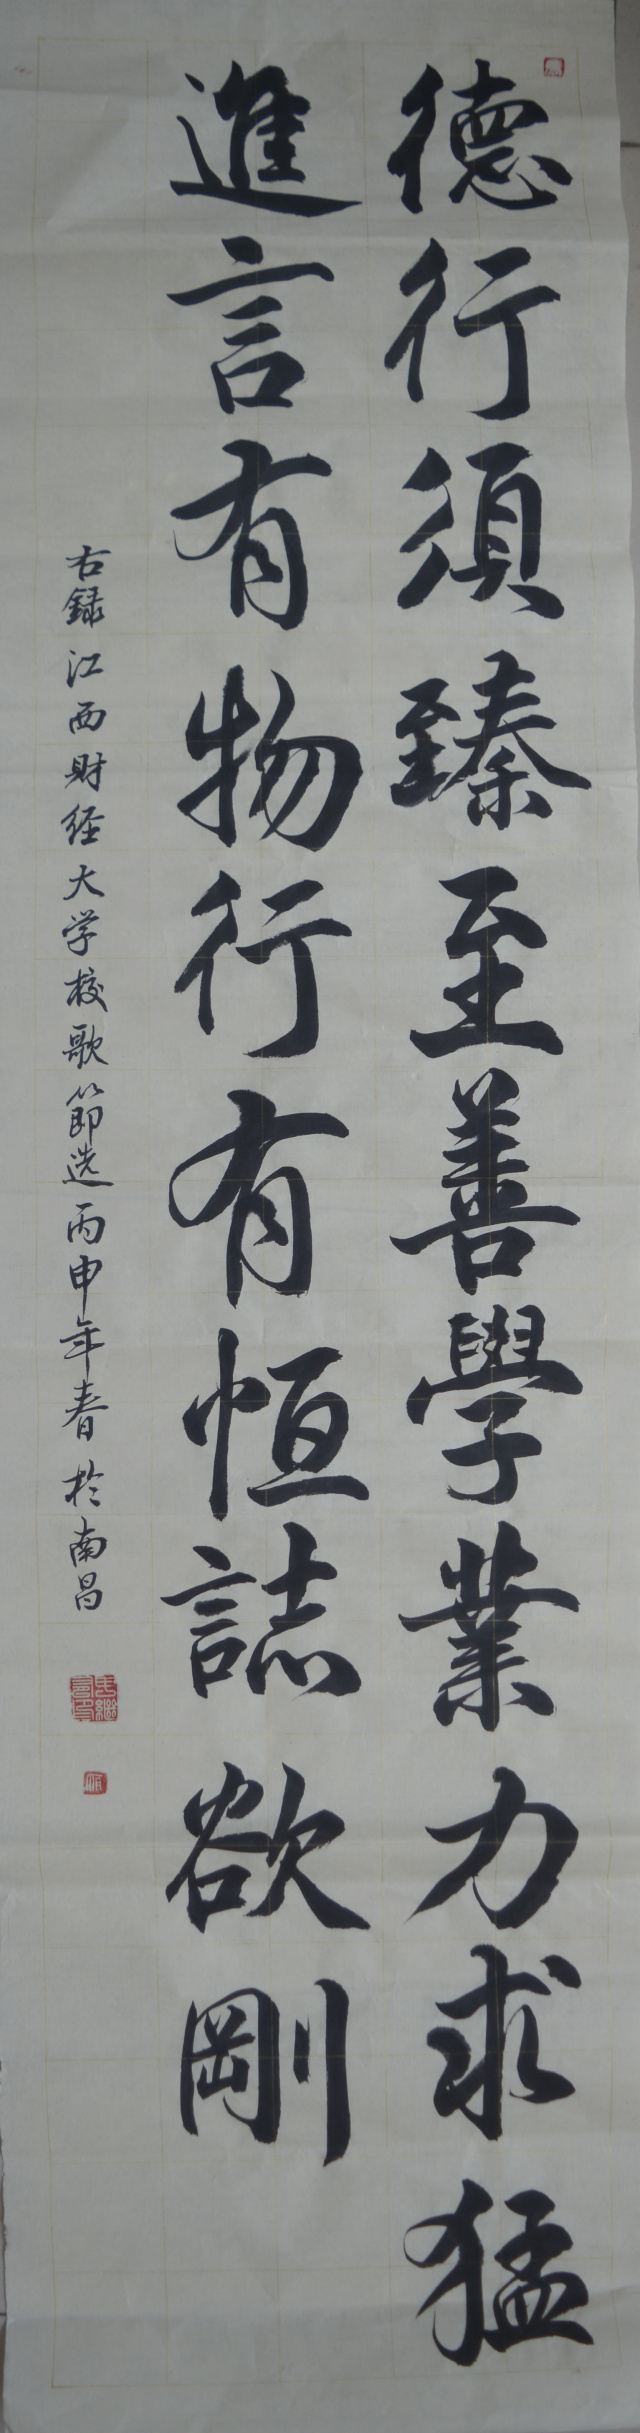 德行須臻至善學業力求猛
進言有物行有恒誌欲剛
右録江西财经大学校歌節选丙申年春於南昌